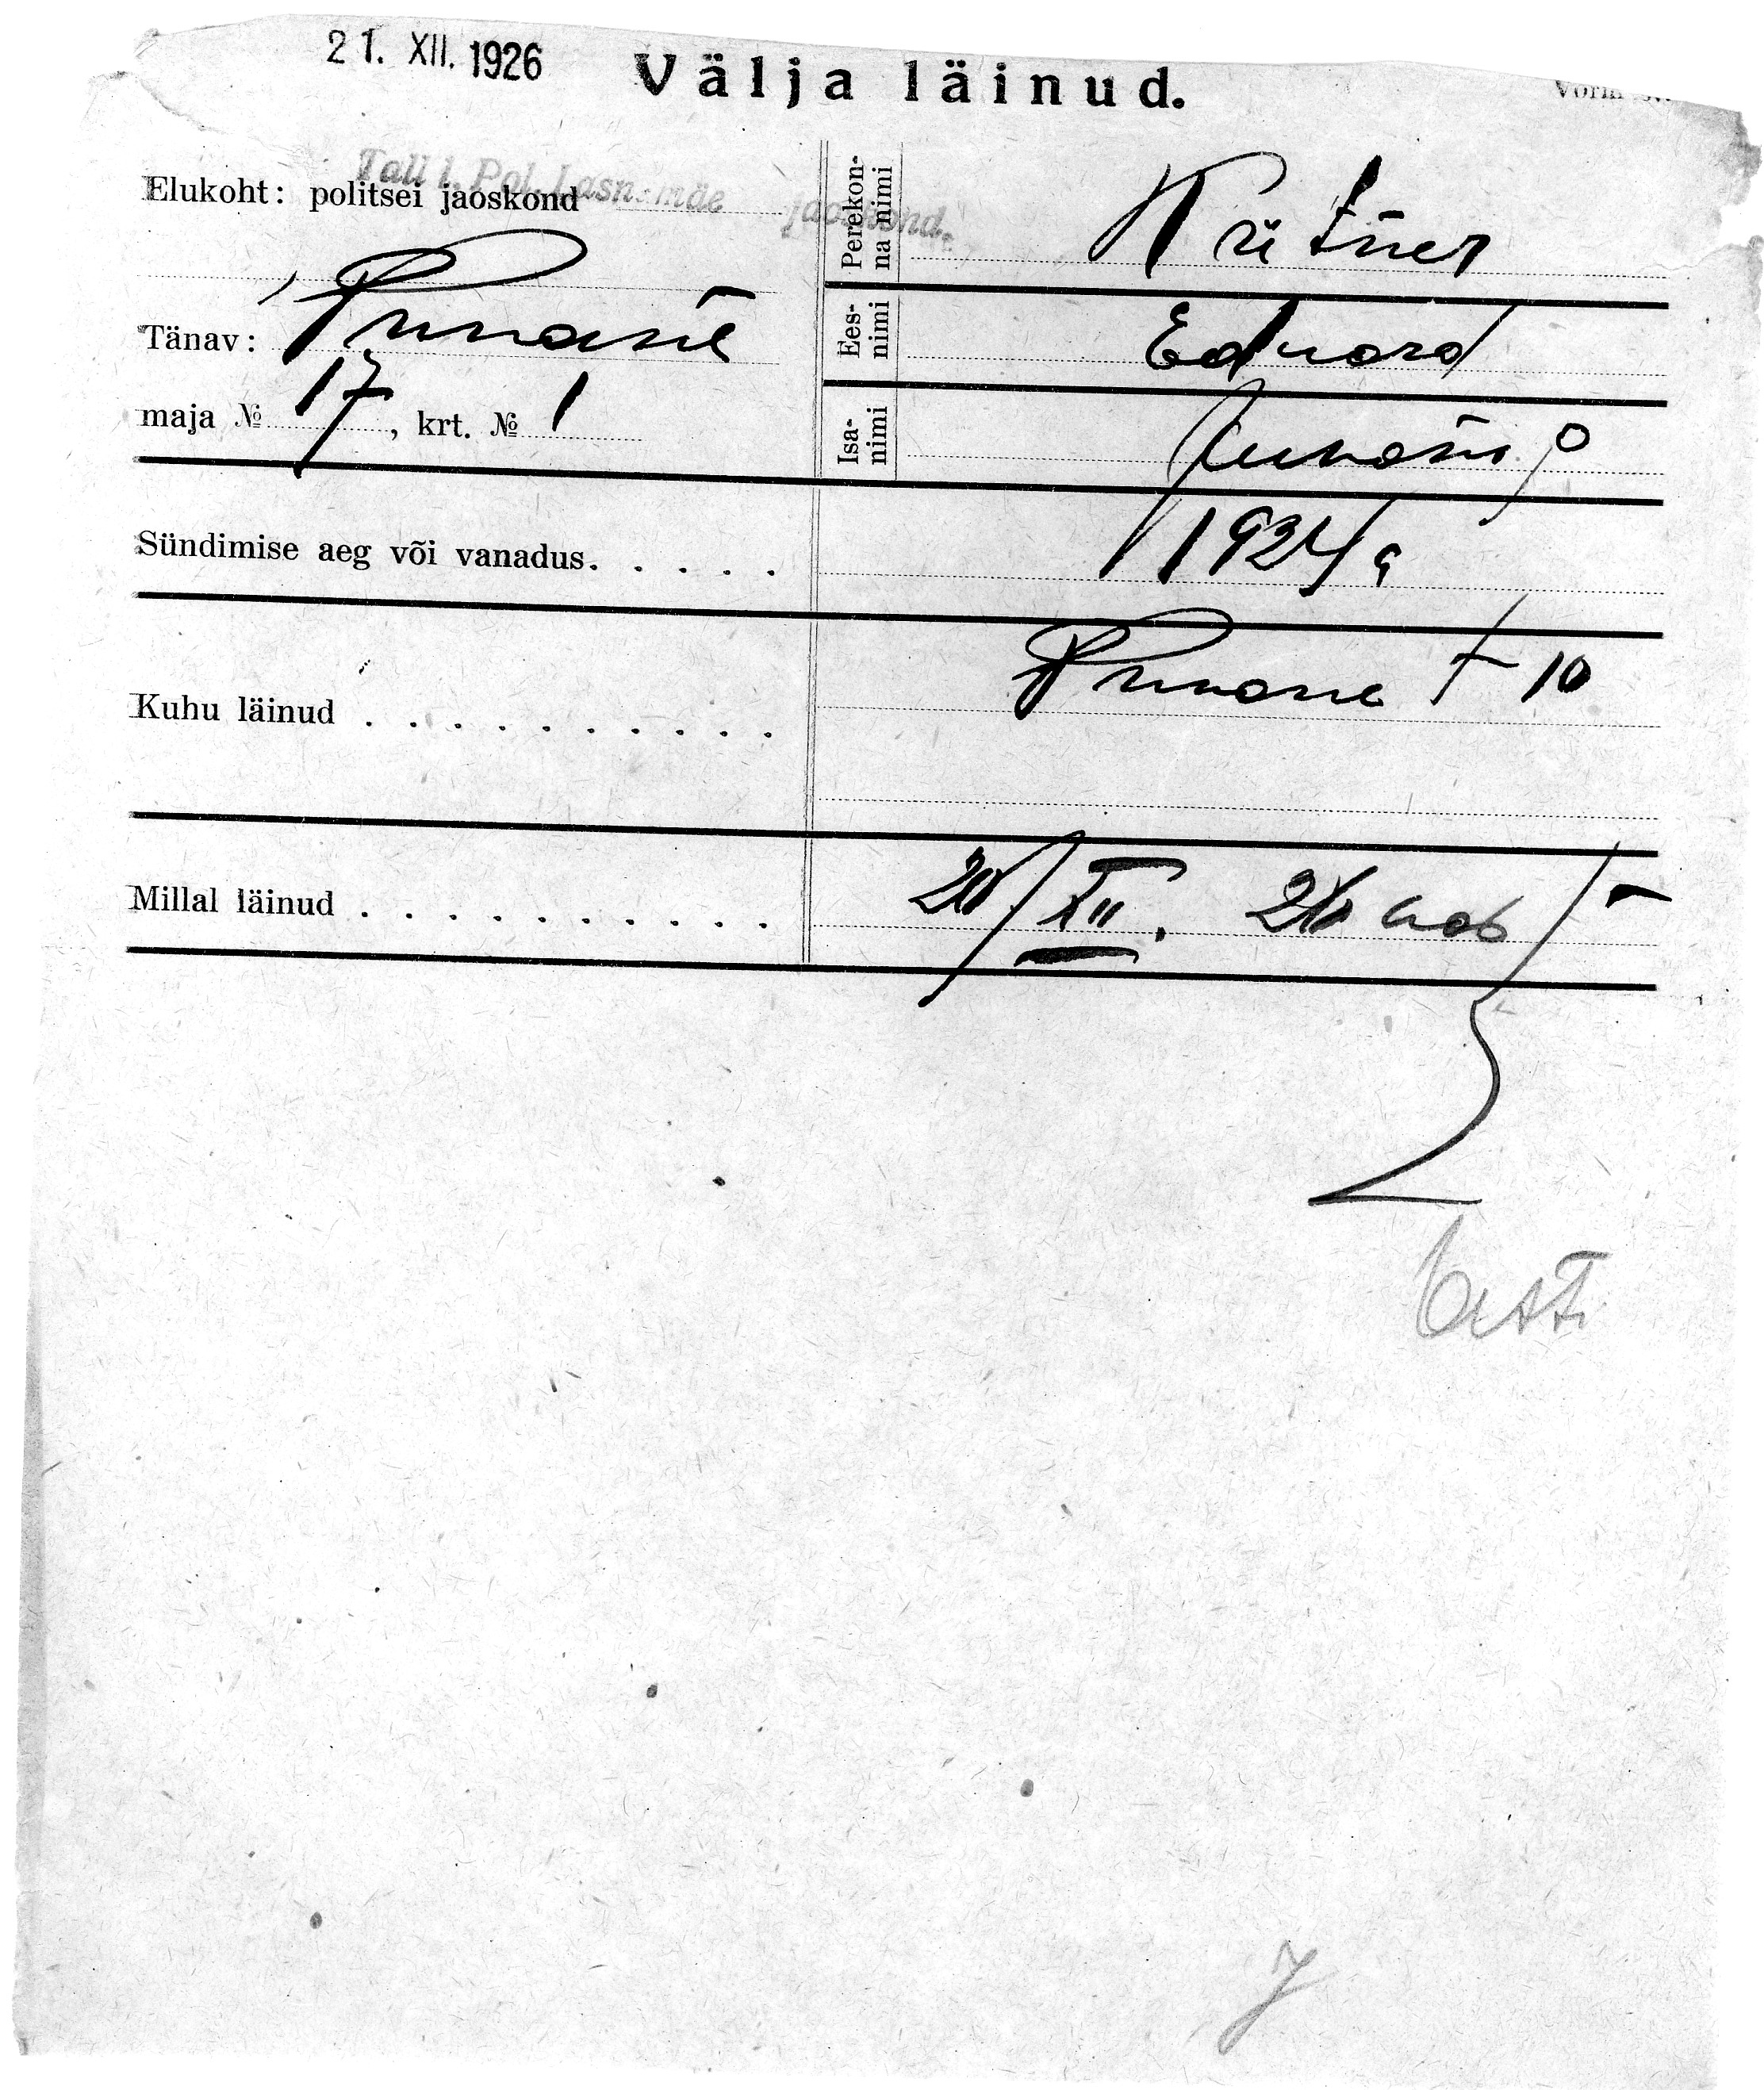 21. XII. 1926
Välja läinud.
Elukoht: politsei jaoskond
Tall. Pol. Lasnamäe jaoskond.
Tänav: Punane
maja № 17, krt. № 1
Perekonna nimi
Eesnimi Eduard
Isanimi
Sündimise aeg või vanadus. . . . . 1924 a
Kuhu läinud . . . . . . . . . . Punane 10
Millal läinud . . . . . . . . . . 20/XII. 26